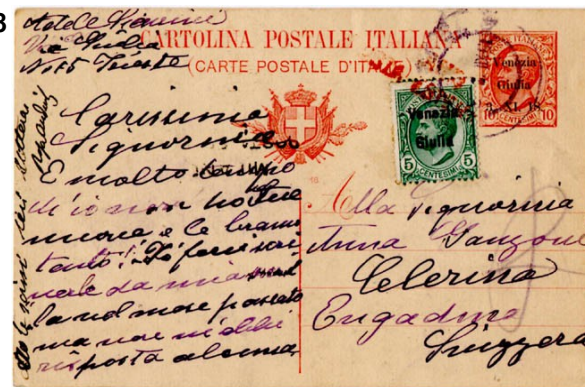 3
CARTOLINA POSTALE ITALIANA
(CARTE POSTALE D'ITALIE)
No 15 Trieste
Venezia
Giulia
3. XI. 18.
10 CENTESIMI 10
Venezia
Giulia
5 CENTESIMI 5
Carissima
Signorina
È molto tempo
ch'io non ho Sue
nuove e le bramo
tanto! Le feci
da mia
la nel mese passato
ma non n'ebbi
risposta alcuna
Alla Signorina
Anna
Celerina
Engadina
Svizzera